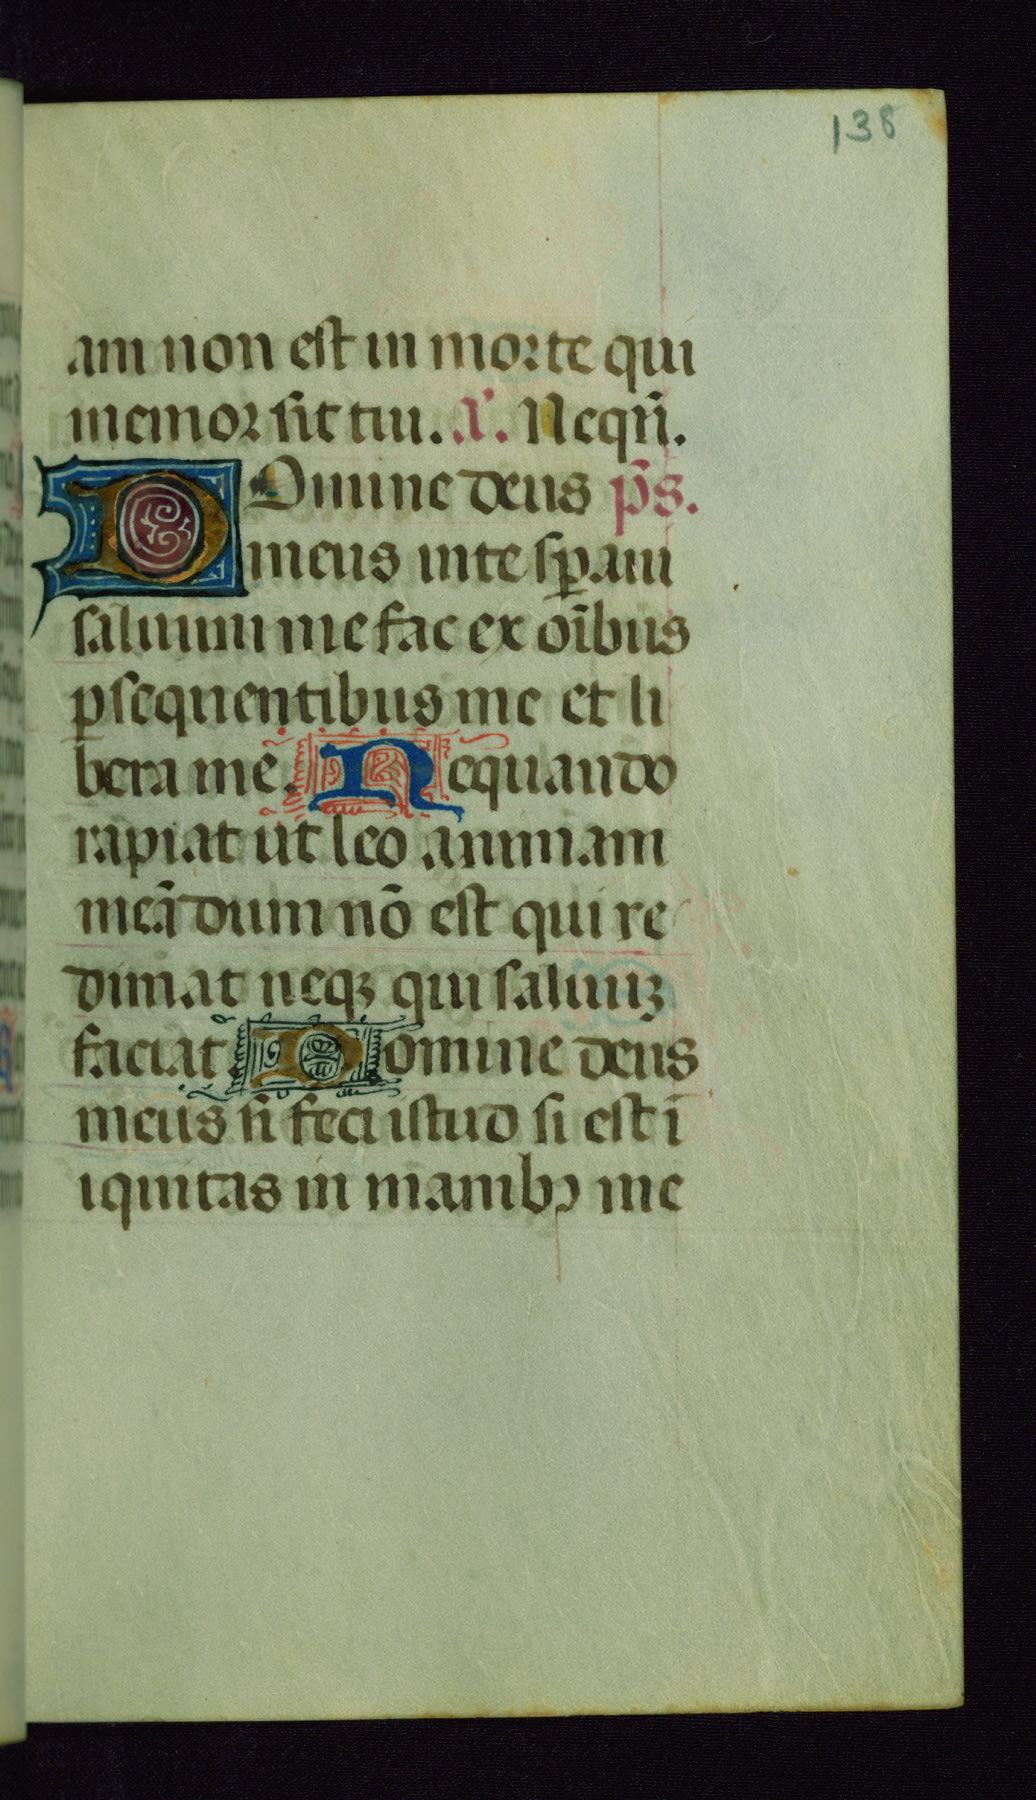 138
am non est in morte qui
memor sit tui. A̅. Nequ̅.
Domine deus ps̅.
meus in te sꝑaui
saluum me fac ex oi̅bus
ꝑsequentibus me et li
bera me. Nequando
rapiat ut leo animam
mea̅ dum no̅ est qui re
dimat neqꝫ qui saluuꝫ
faciat Domine deus
meus si feci istud si est i̅
iquitas in manibꝰ me